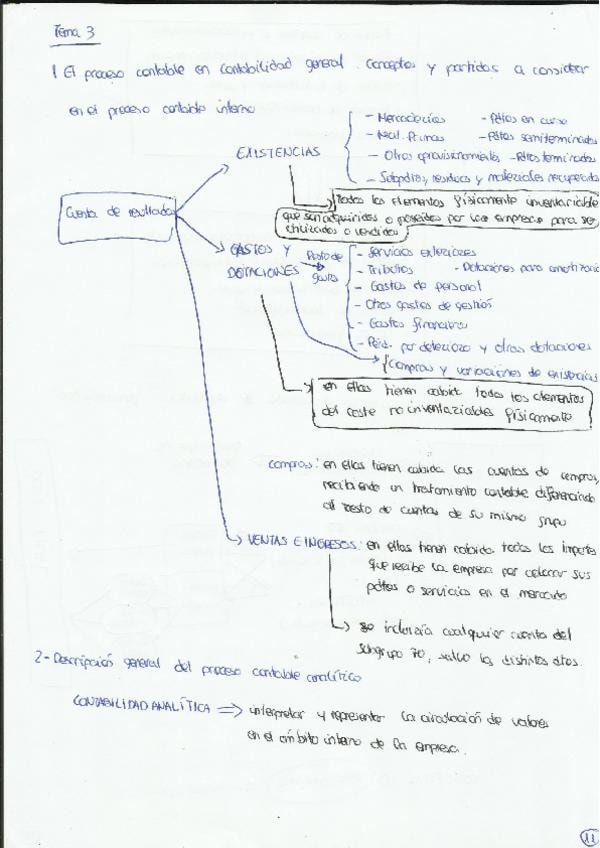 Tema 3
1. El proceso contable en contabilidad general. Conceptos y partidas a considerar
en el proceso contable interno
- Mercaderías - Pdtos en curso
- Mat. Primas - Pdtos semiterminados
EXISTENCIAS
- Otros aprovisionamientos - Pdtos terminados
- Subpdtos, residuos y materiales recuperados
Todos los elementos físicamente inventariable
que son adquiridos o poseidos por las empresas para ser
utilizados o vendidos
Cuenta de resultados
GASTOS Y
DOTACIONES
Resto de
gasto
- Servicios exteriores
- Tributos - Dotaciones para amortizacio
- Gastos de personal
- Otros gastos de gestión
- Gastos financieros
- Pérd. por deterioro y otras dotaciones
Compras y variaciones de existencias
en ellas tienen cabida todos los elementos
del coste no inventariables físicamente
Compras: en ellas tienen cabida las cuentas de compras,
recibiendo un tratamiento contable diferenciado
al resto de cuentas de su mismo grupo
VENTAS E INGRESOS: en ellas tienen cabida todos los importes
que recibe la empresa por colocar sus
pdtos o servicios en el mercado
se incluiría cualquier cuenta del
Subgrupo 70, salvo los distintos dtos.
2- Descripción general del proceso contable analítico
CONTABILIDAD ANALÍTICA => interpretar y representar la circulación de valores
en el ámbito interno de la empresa.
11